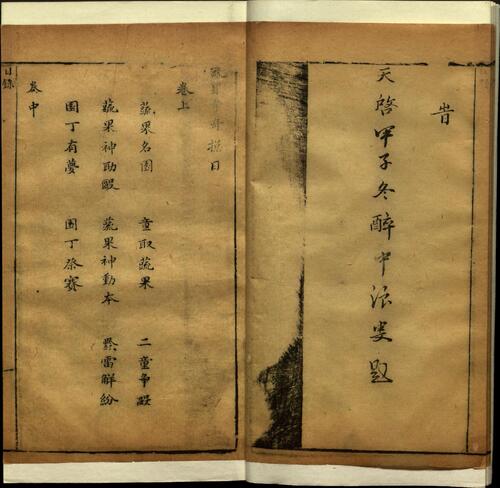 旹
天啓甲子冬醉中浪叟題
目
卷上
蔬果名園 童取蔬果 二童爭毆
蔬果神助毆 蔬果神動本 雷觧紛
圃丁有夢 圃丁祭賽
卷中
目錄